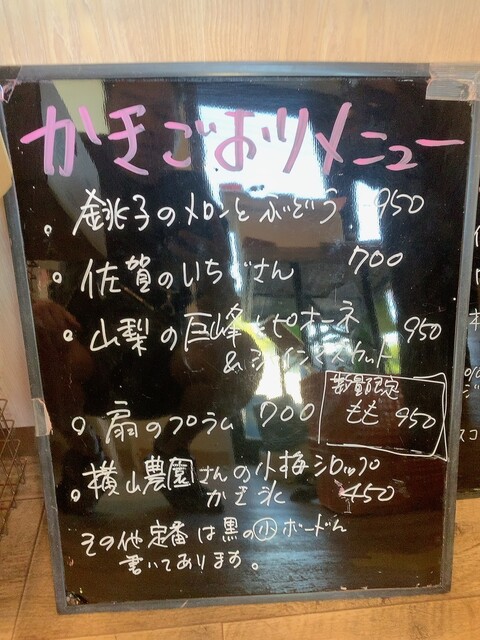 かきごおりメニュー
銚子のメロンとぶどう 950
佐賀のいちごさん 700
山梨の巨峰とピオーネ 950
&シャインマスカット
数量限定
もも 950
扇のプラム 700
横山農園さんの小梅シロップ
かき氷 450
その他定番は黒の小ボードに
書いてあります。